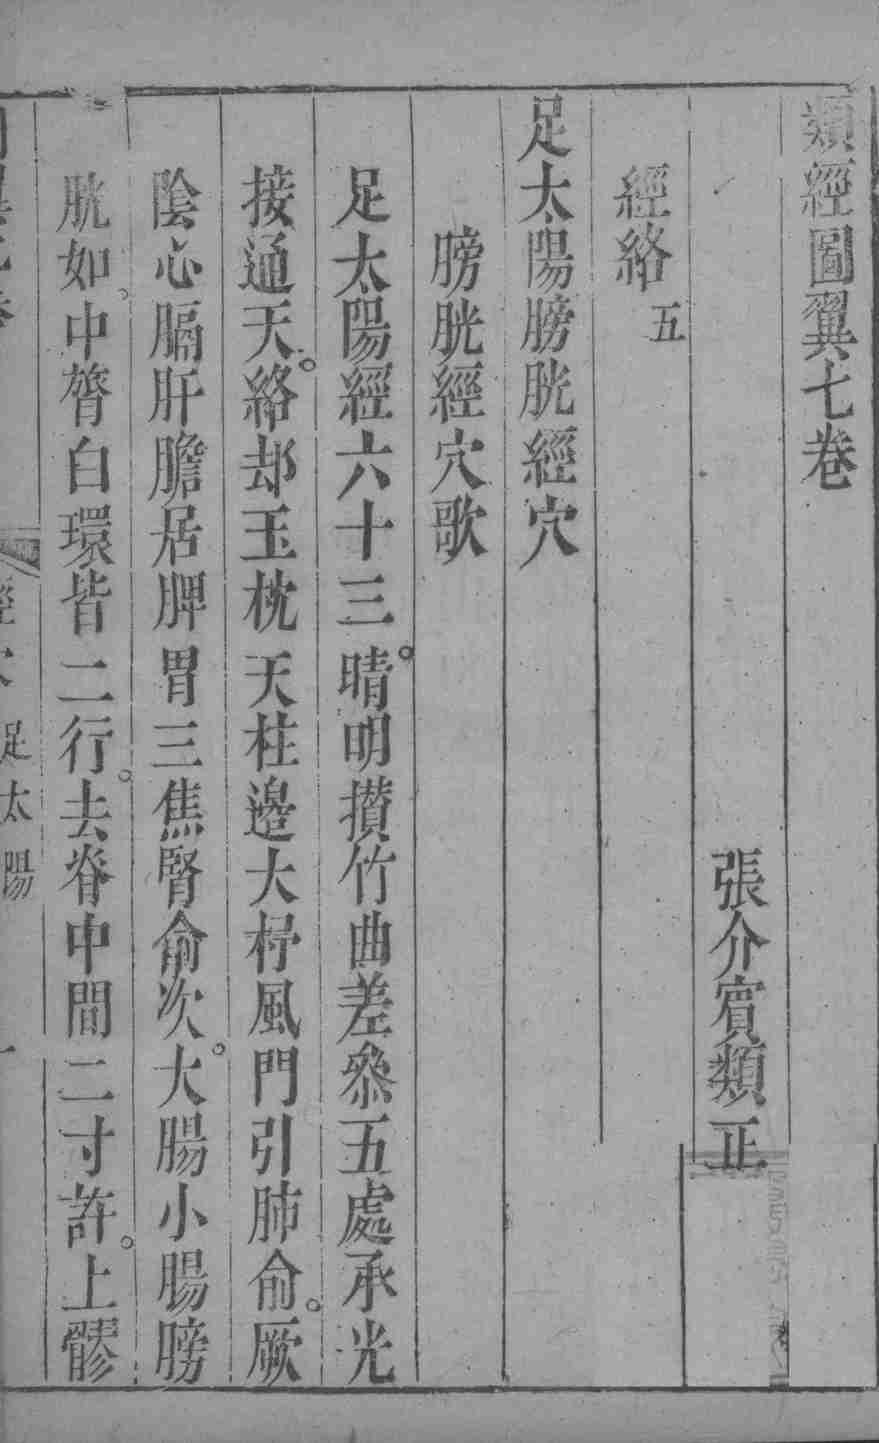 類經圖翼七卷
張介賓類正
經絡 五
足太陽膀胱經穴
膀胱經穴歌
足太陽經六十三。睛明攅竹曲差叅五處承光
接通天。絡却玉枕天柱邊大杼風門引肺俞。厥
陰心膈肝膽居脾胃三焦腎俞次。大腸小腸膀
胱如。中膂白環皆二行。去脊中間二寸許。上髎
足太陽
一